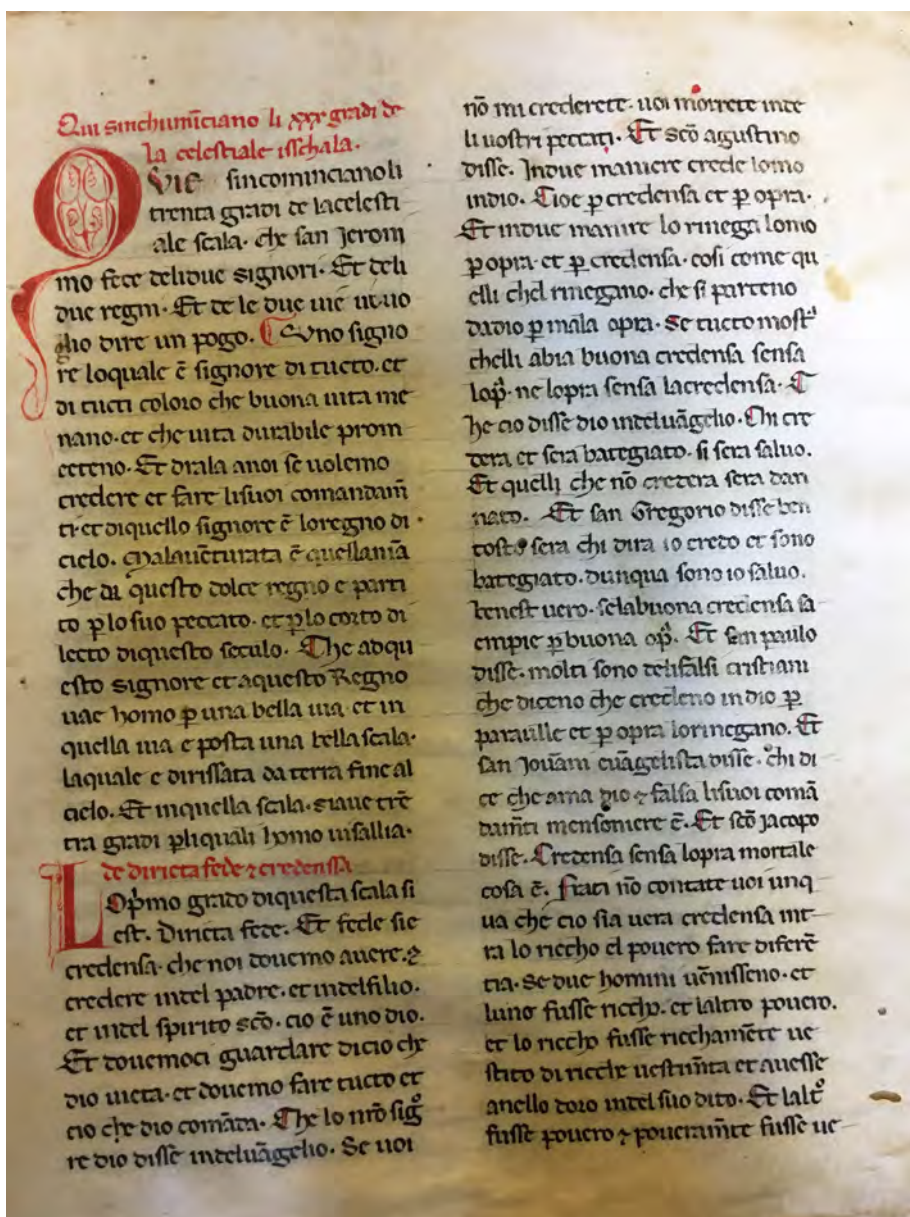 Qui sinchumīciano li xxx gradi de
la celestiale isschala.
QVIE sincomincianoli
trenta gradi de lacelesti
ale scala. che san Jeroni
mo fece delidue signori. Et deli
due regni. Et de le due uie ui uo
glio dire un pogo. Uno signo
re loquale ē signore di tucto. et
di tucti coloro che buona uita me
nano. et che uita durabile prom
ecteno. Et drala anoi se uolemo
credere et fare lisuoi comandam̄
ti. et diquello signore ē loregno di
cielo. Malauēturata ē quellania
che da questo dolce regno e parti
to p̱ lo suo peccato. et p̱lo corto di
lecto diquesto seculo. Che adqu
esto signore et aquesto Regno
uae homo p̱ una bella uia. et in
quella uia e posta una bella scala.
laquale e dirissata da terra fine al
cielo. Et inquella scala. siaue trē
ta gradi p̱liquali homo uisallia.
de diricta fede ⁊ credenssa
LOp̄mo grado diquesta scala si
est. Diricta fede. Et fede sie
credensa. che noi douemo auere. ⁊
credere intel padre. et intelfilio.
et intel spirito sc̄o. cio ē uno dio.
Et douemoci guardare dicio che
dio uieta. et douemo fare tucto et
cio che dio comāda. Che lo nrō sig̊
re dio disse inteluāgelio. Se uoi
nō mi crederete. uoi morrete inte
li uostri peccati. Et sc̄o agustino
disse. Indue maniere crede lomo
indio. Cioe p̱ credensa et p̱ opra.
Et indue manire lo rinega lomo
p̱ opra. et p̱ credensa. cosi come qu
elli chel rinegano. che si parteno
dadio p̱ mala opra. Se tucto most͛
chelli abia buona credensa sensa
lop͛. ne lopra sensa lacredensa. C
he cio disse dio inteluāgelio. Chi cre
dera et sera bategiato. si sera saluo.
Et quelli che nō credera sera dan
nato. Et san Gregorio disse ben
tosto sera chi dira io creto et sono
bategiato. dunqua sono io saluo.
benest uero. selabuona credensa sa
empie p̱ buona op͛. Et sam paulo
disse. molti sono delifalsi cristiani
che diceno che credeno in dio p̱
paraulle et p̱ opra lorinegano. Et
san Jouāni euāgelista disse. chi di
ce che ama dio ⁊ falsa lisuoi comā
dam̄ti mensoniere ē. Et sc̄o Jacopo
disse. Credensa sensa lopra mortale
cosa ē. Frati nō contate uoi unq
ua che cio sia uera credensa int
ra lo riccho el pouero fare diferē
tia. Se due homini uēnisseno. et
luno fusse riccho. et laltro pouero.
et lo riccho fusse ricchamēte ue
stito di ricche uestim̄ta et auesse
anello doro intel suo dito. Et lalt̊
fusse pouero ⁊ poueram̄te fusse ue